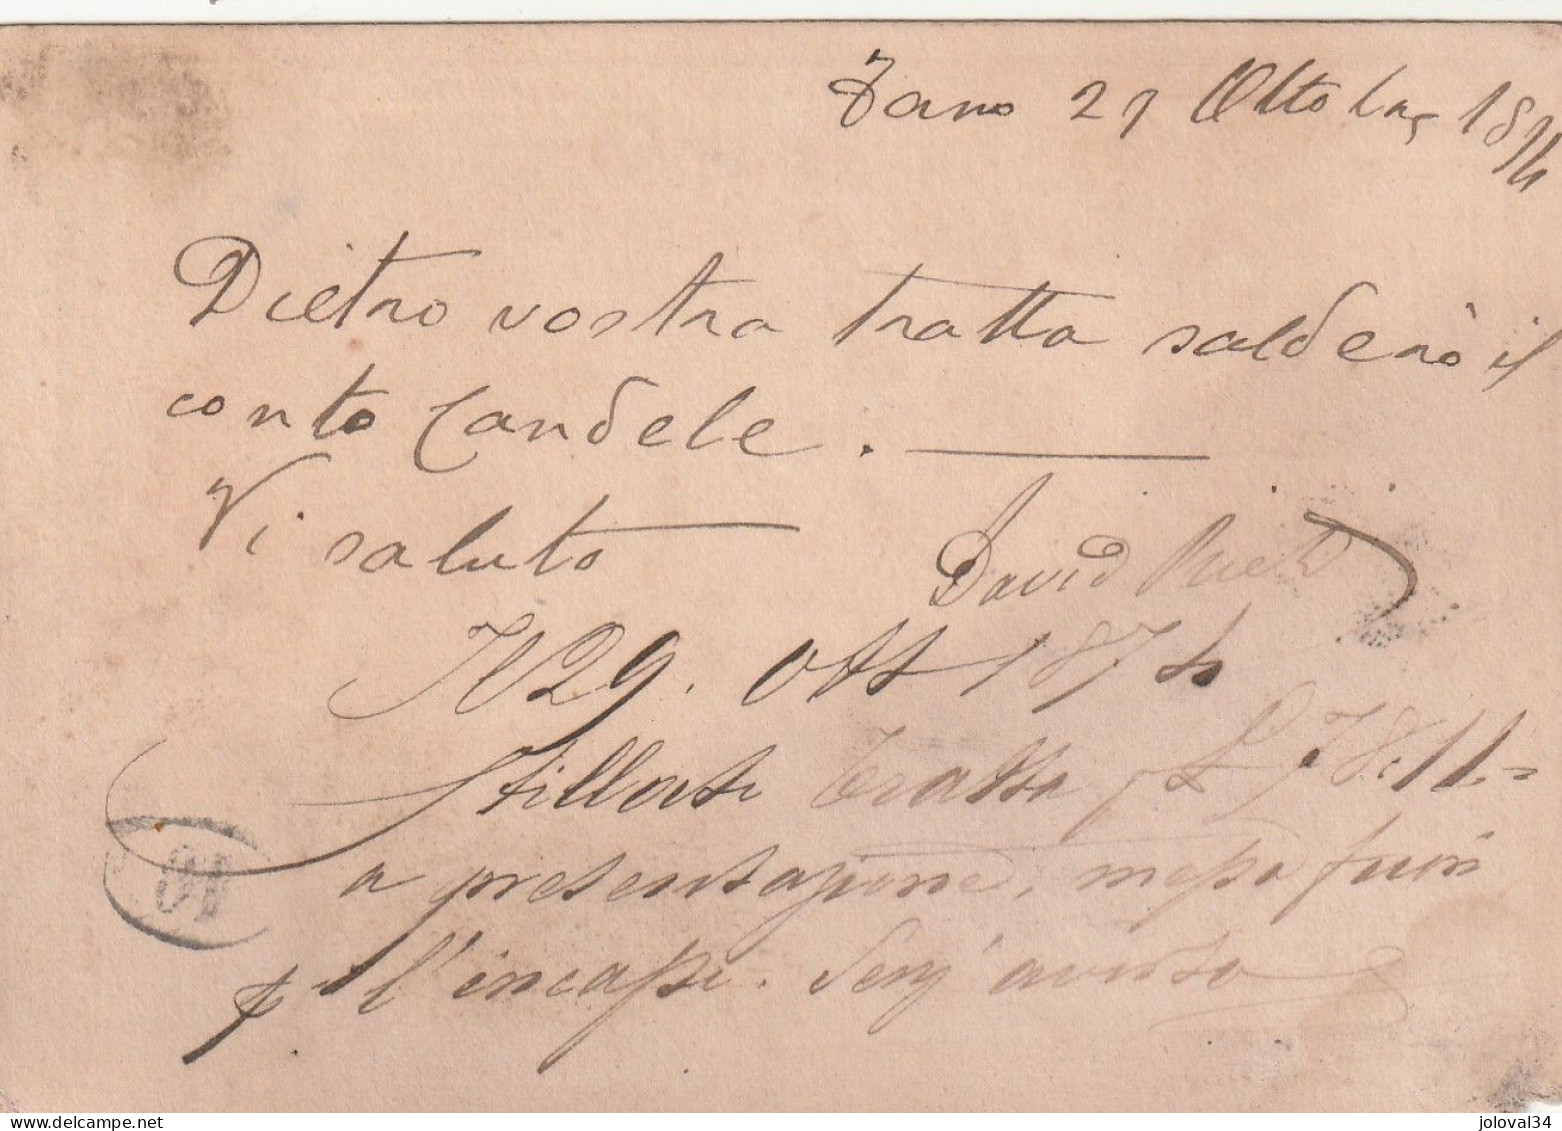 Fano 27 Ottobre 1874
Dietro vostra tratta salderò il
conto Candele.
Vi saluto
David Rieti
N 29. Ott 1874
tratta £ 78.11.=
a presentazione, messa fuori
p l'incasso. Senz' avviso
10
delcampe.net
joloval34